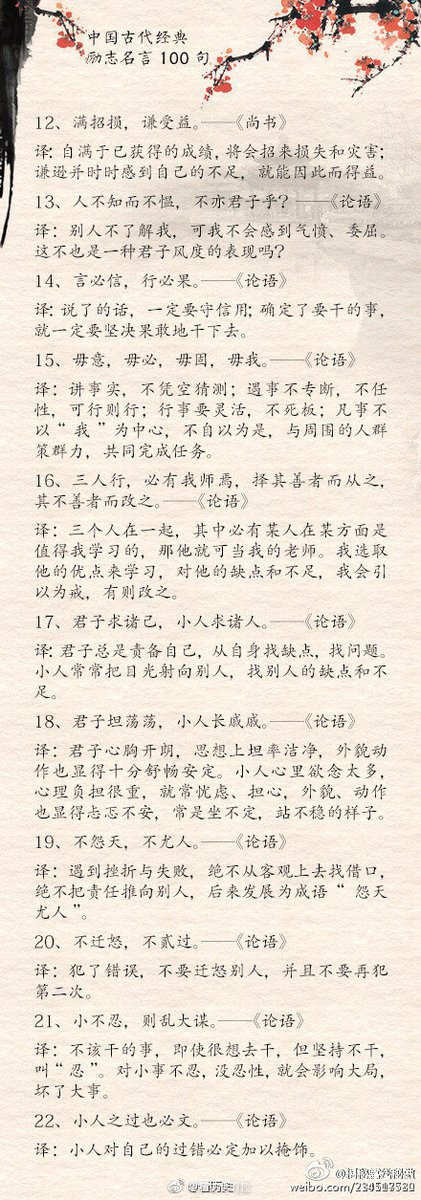 中国古代经典
励志名言100句
12、满招损，谦受益。——《尚书》
译：自满于已获得的成绩，将会招来损失和灾害；
谦逊并时时感到自己的不足，就能因此而得益。
13、人不知而不愠，不亦君子乎？——《论语》
译：别人不了解我，可我不会感到气愤、委屈。
这不也是一种君子风度的表现吗？
14、言必信，行必果。——《论语》
译：说了的话，一定要守信用；确定了要干的事，
就一定要坚决果敢地干下去。
15、毋意，毋必，毋固，毋我。——《论语》
译：讲事实，不凭空猜测；遇事不专断，不任
性，可行则行；行事要灵活，不死板；凡事不
以“我”为中心，不自以为是，与周围的人群
策群力，共同完成任务。
16、三人行，必有我师焉，择其善者而从之，
其不善者而改之。——《论语》
译：三个人在一起，其中必有某人在某方面是
值得我学习的，那他就可当我的老师。我选取
他的优点来学习，对他的缺点和不足，我会引
以为戒，有则改之。
17、君子求诸己，小人求诸人。——《论语》
译：君子总是责备自己，从自身找缺点，找问题。
小人常常把目光射向别人，找别人的缺点和不
足。
18、君子坦荡荡，小人长戚戚。——《论语》
译：君子心胸开朗，思想上坦率洁净，外貌动
作也显得十分舒畅安定。小人心里欲念太多，
心理负担很重，就常忧虑、担心，外貌、动作
也显得忐忑不安，常是坐不定，站不稳的样子。
19、不怨天，不尤人。——《论语》
译：遇到挫折与失败，绝不从客观上去找借口，
绝不把责任推向别人，后来发展为成语“怨天
尤人”。
20、不迁怒，不贰过。——《论语》
译：犯了错误，不要迁怒别人，并且不要再犯
第二次。
21、小不忍，则乱大谋。——《论语》
译：不该干的事，即使很想去干，但坚持不干，
叫“忍”。对小事不忍，没忍性，就会影响大局，
坏了大事。
22、小人之过也必文。——《论语》
译：小人对自己的过错必定加以掩饰。
weibo.com/